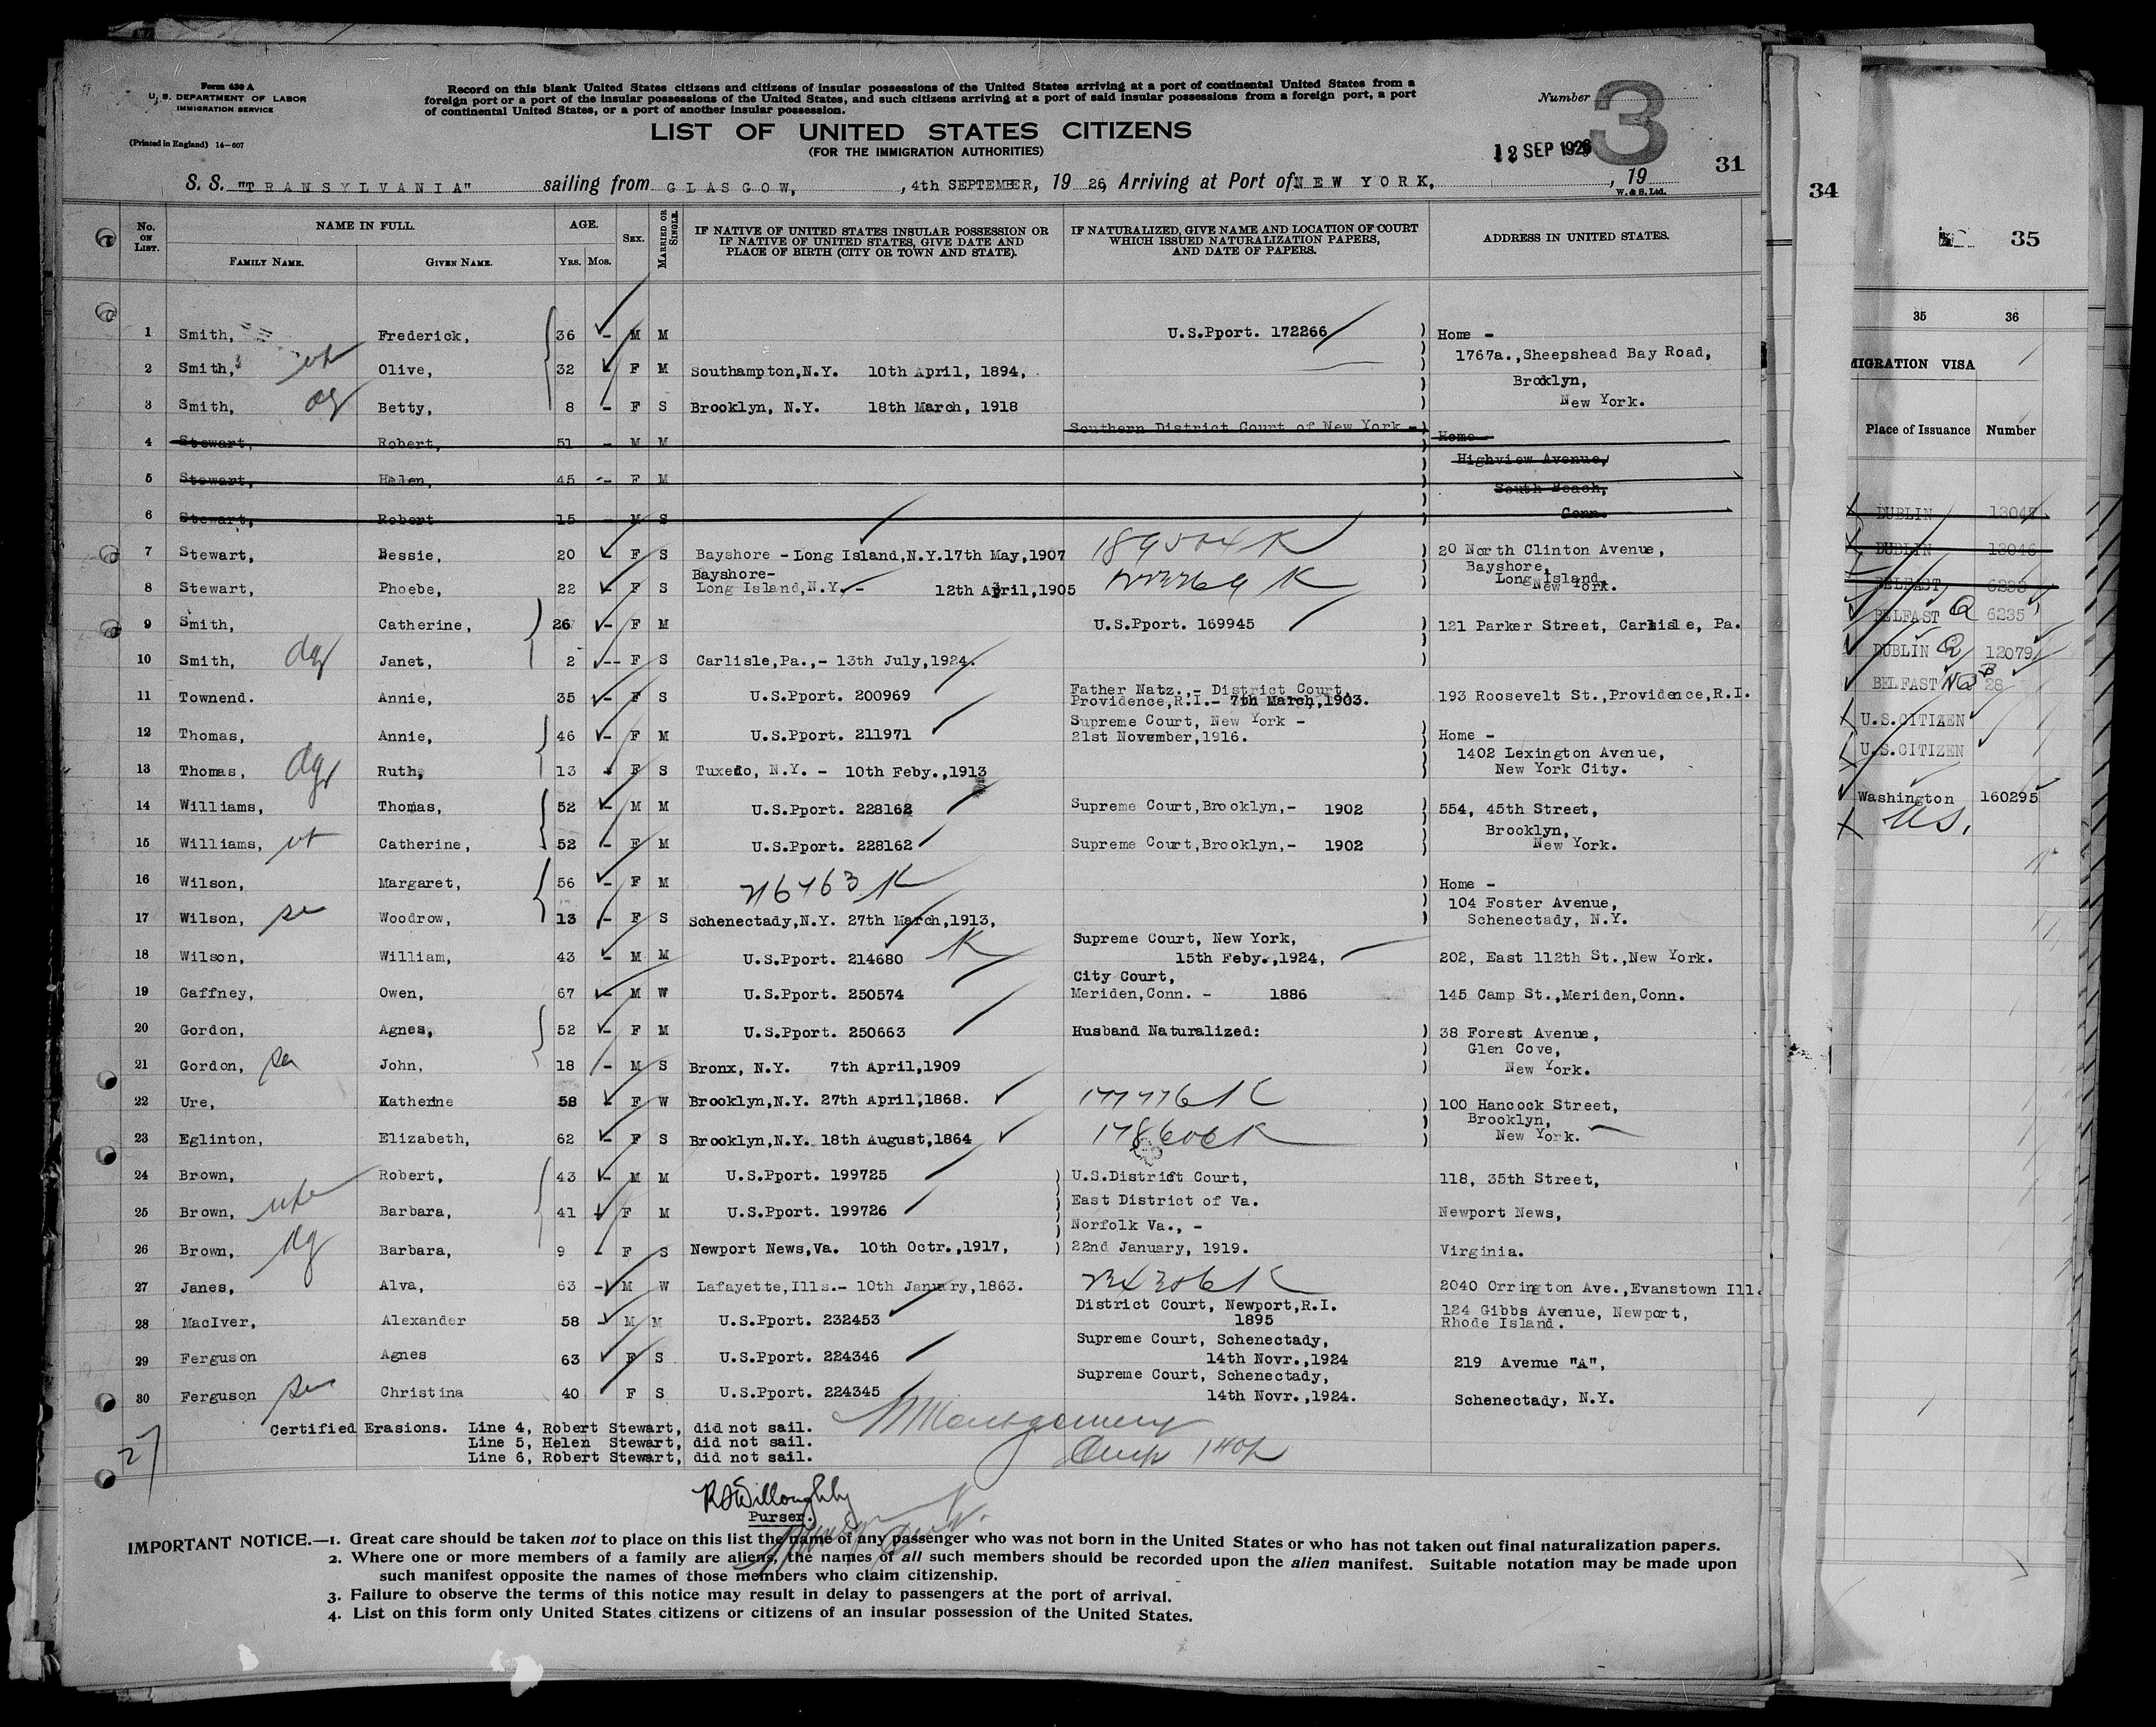 Form 630 A
U. S. DEPARTMENT OF LABOR
IMMIGRATION SERVICE
(Printed in England) 14-607
Record on this blank United States citizens and citizens of insular possessions of the United States arriving at a port of continental United States from a
foreign port or a port of the insular possessions of the United States, and such citizens arriving at a port of said insular possessions from a foreign port, a port
of continental United States, or a port of another insular possession.
LIST OF UNITED STATES CITIZENS
(FOR THE IMMIGRATION AUTHORITIES)
Number 3
12 SEP 1926
31
S. S. "TRANSYLVANIA" sailing from GLASGOW, , 4th SEPTEMBER, 1926, Arriving at Port of NEW YORK, , 19
W. & S. Ltd.
No. ON LIST. NAME IN FULL. FAMILY NAME. GIVEN NAME. AGE. YRS. MOS. SEX. MARRIED OR SINGLE. IF NATIVE OF UNITED STATES INSULAR POSSESSION OR IF NATIVE OF UNITED STATES, GIVE DATE AND PLACE OF BIRTH (CITY OR TOWN AND STATE). IF NATURALIZED, GIVE NAME AND LOCATION OF COURT WHICH ISSUED NATURALIZATION PAPERS, AND DATE OF PAPERS. ADDRESS IN UNITED STATES.
1 Smith, Frederick, 36 - M M U.S.Pport. 172266 Home -
1767a.,Sheepshead Bay Road,
2 Smith, Olive, 32 - F M Southampton,N.Y. 10th April, 1894,
Brooklyn,
3 Smith, Betty, 8 - F S Brooklyn, N.Y. 18th March, 1918 New York.
Southern District Court of New York -
4 Stewart, Robert, 51 - M M Home -
Highview Avenue,
5 Stewart, Helen, 45 -- F M
South Beach,
6 Stewart, Robert 15 - M S Conn.
7 Stewart, Bessie, 20 F S Bayshore - Long Island,N.Y.17th May,1907 189504 K 20 North Clinton Avenue,
Bayshore,
8 Stewart, Phoebe, 22 - F S Bayshore-
Long Island,N.Y. - 12th April,1905 Long Island,
New York.
9 Smith, Catherine, 26 - F M U.S.Pport. 169945 121 Parker Street, Carlisle, Pa.
10 Smith, Janet, 2 -- F S Carlisle,Pa.,- 13th July,1924.
11 Townend. Annie, 35 - F S U.S.Pport. 200969 Father Natz.,- District Court,
Providence,R.I.- 7th March,1903. 193 Roosevelt St.,Providence,R.I.
Supreme Court, New York -
12 Thomas, Annie, 46 - F M U.S.Pport. 211971 21st November,1916. Home -
1402 Lexington Avenue,
13 Thomas, Ruth, 13 F S Tuxedo, N.Y. - 10th Feby.,1913 New York City.
14 Williams, Thomas, 52 - M M U.S.Pport. 228162 Supreme Court,Brooklyn,- 1902 554, 45th Street,
Brooklyn,
15 Williams, Catherine, 52 - F M U.S.Pport. 228162 Supreme Court,Brooklyn,- 1902 New York.
16 Wilson, Margaret, 56 - F M 216763 K Home -
104 Foster Avenue,
17 Wilson, Woodrow, 13 - F S Schenectady,N.Y. 27th March,1913, Schenectady, N.Y.
Supreme Court, New York,
18 Wilson, William, 43 - M M U.S.Pport. 214680 K 15th Feby.,1924, 202, East 112th St.,New York.
City Court,
19 Gaffney, Owen, 67 - M W U.S.Pport. 250574 Meriden,Conn. - 1886 145 Camp St.,Meriden,Conn.
20 Gordon, Agnes, 52 - F M U.S.Pport. 250663 Husband Naturalized: 38 Forest Avenue,
Glen Cove,
21 Gordon, John, 18 - M S Bronx, N.Y. 7th April,1909 New York.
22 Ure, Katherine 58 - F W Brooklyn,N.Y. 27th April,1868. 177776 K 100 Hancock Street,
Brooklyn,
23 Eglinton, Elizabeth, 62 - F S Brooklyn,N.Y. 18th August,1864 178606 K New York.
24 Brown, Robert, 43 - M M U.S.Pport. 199725 U.S.District Court, 118, 35th Street,
East District of Va.
25 Brown, Barbara, 41 F M U.S.Pport. 199726 Newport News,
Norfolk Va., -
26 Brown, Barbara, 9 - F S Newport News,Va. 10th Octr.,1917, 22nd January, 1919. Virginia.
27 Janes, Alva, 63 - M W Lafayette,Ills.- 10th January,1863. 234306 K 2040 Orrington Ave.,Evanstown Ill.
28 MacIver, Alexander 58 - M M U.S.Pport. 232453 District Court, Newport,R.I.
1895 124 Gibbs Avenue, Newport,
Rhode Island.
Supreme Court, Schenectady,
29 Ferguson Agnes 63 F S U.S.Pport. 224346 14th Novr.,1924 219 Avenue "A",
Supreme Court, Schenectady,
30 Ferguson Christina 40 F S U.S.Pport. 224345 14th Novr.,1924. Schenectady, N.Y.
Certified Erasions. Line 4, Robert Stewart, did not sail.
Line 5, Helen Stewart, did not sail.
Line 6, Robert Stewart, did not sail.
27
Montgomery
Willoughby
Purser.
IMPORTANT NOTICE.—1. Great care should be taken not to place on this list the name of any passenger who was not born in the United States or who has not taken out final naturalization papers.
2. Where one or more members of a family are aliens, the names of all such members should be recorded upon the alien manifest. Suitable notation may be made upon
such manifest opposite the names of those members who claim citizenship.
3. Failure to observe the terms of this notice may result in delay to passengers at the port of arrival.
4. List on this form only United States citizens or citizens of an insular possession of the United States.
34
35
35 36
MIGRATION VISA
Place of Issuance Number
DUBLIN 13045
DUBLIN 13046
BELFAST 6233
BELFAST 6235
DUBLIN 12079
BELFAST 28
U.S.CITIZEN
U.S.CITIZEN
Washington 160295
US.